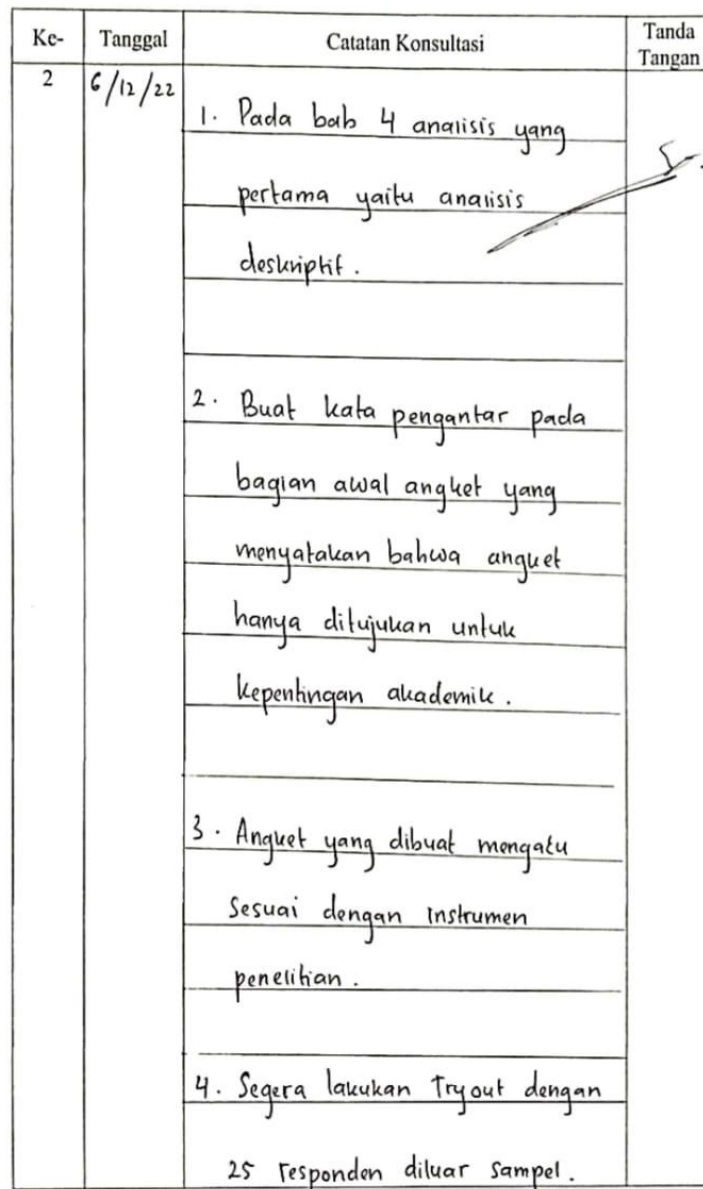 Ke- Tanggal Catatan Konsultasi Tanda Tangan
2 6/12/22
1. Pada bab 4 analisis yang
pertama yaitu analisis
deskriptif.
2. Buat kata pengantar pada
bagian awal angket yang
menyatakan bahwa angket
hanya ditujukan untuk
kepentingan akademik.
3. Angket yang dibuat mengatu
sesuai dengan instrumen
penelitian.
4. Segera lakukan Tryout dengan
25 responden diluar sampel.